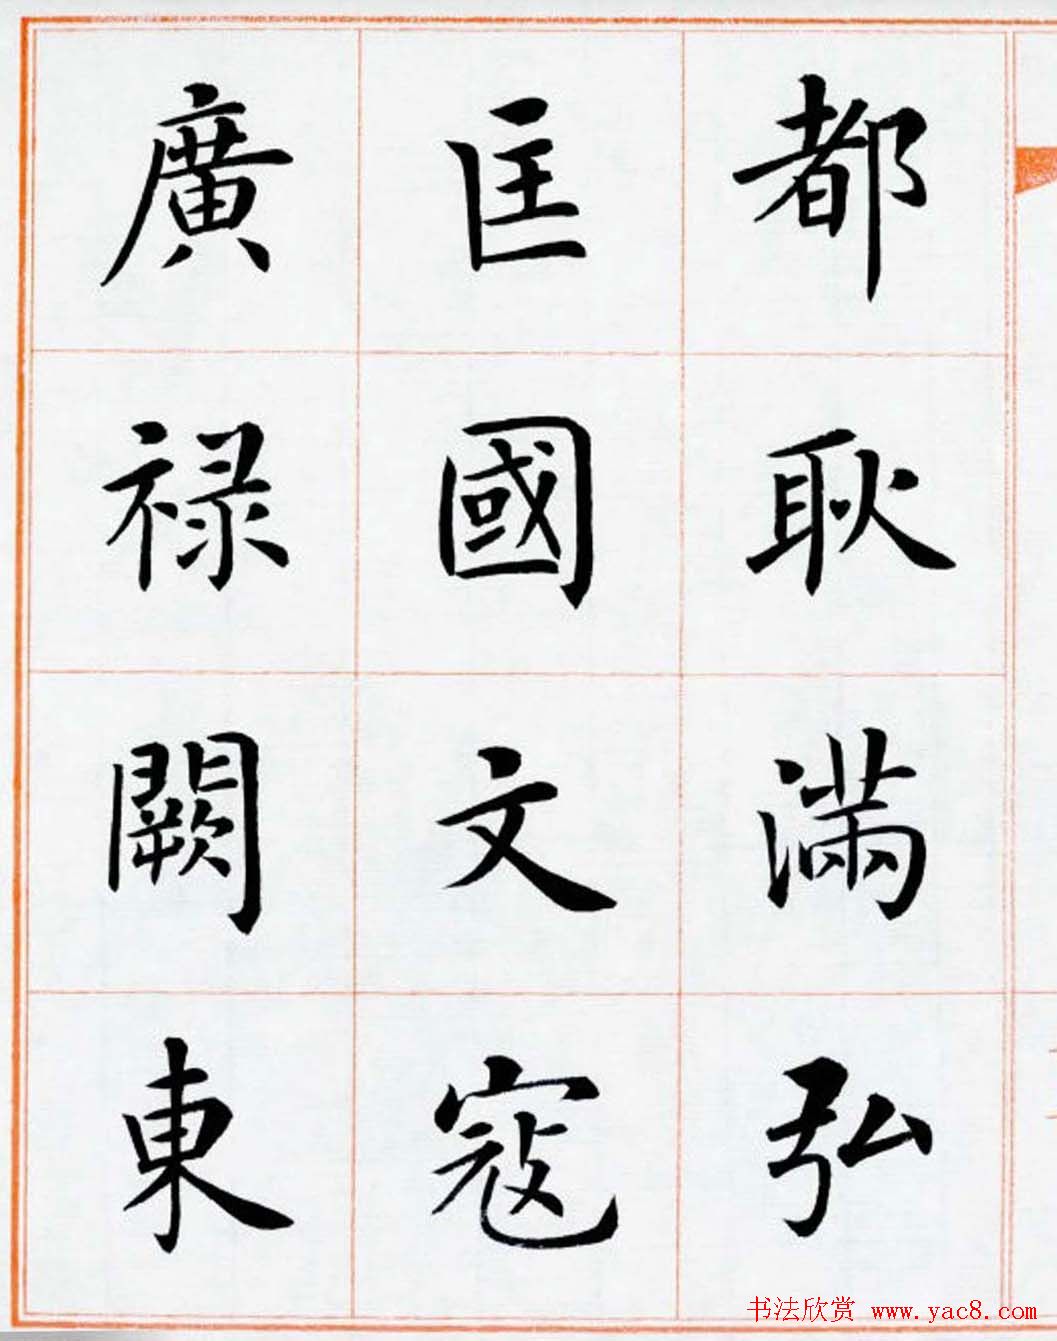 都耿滿弘
匡國文寇
廣禄闕東
书法欣赏 www.yac8.com